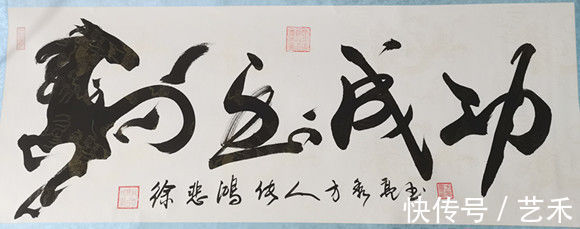 馬到成功
徐悲鸿传人方亮书
快传号 / 艺禾